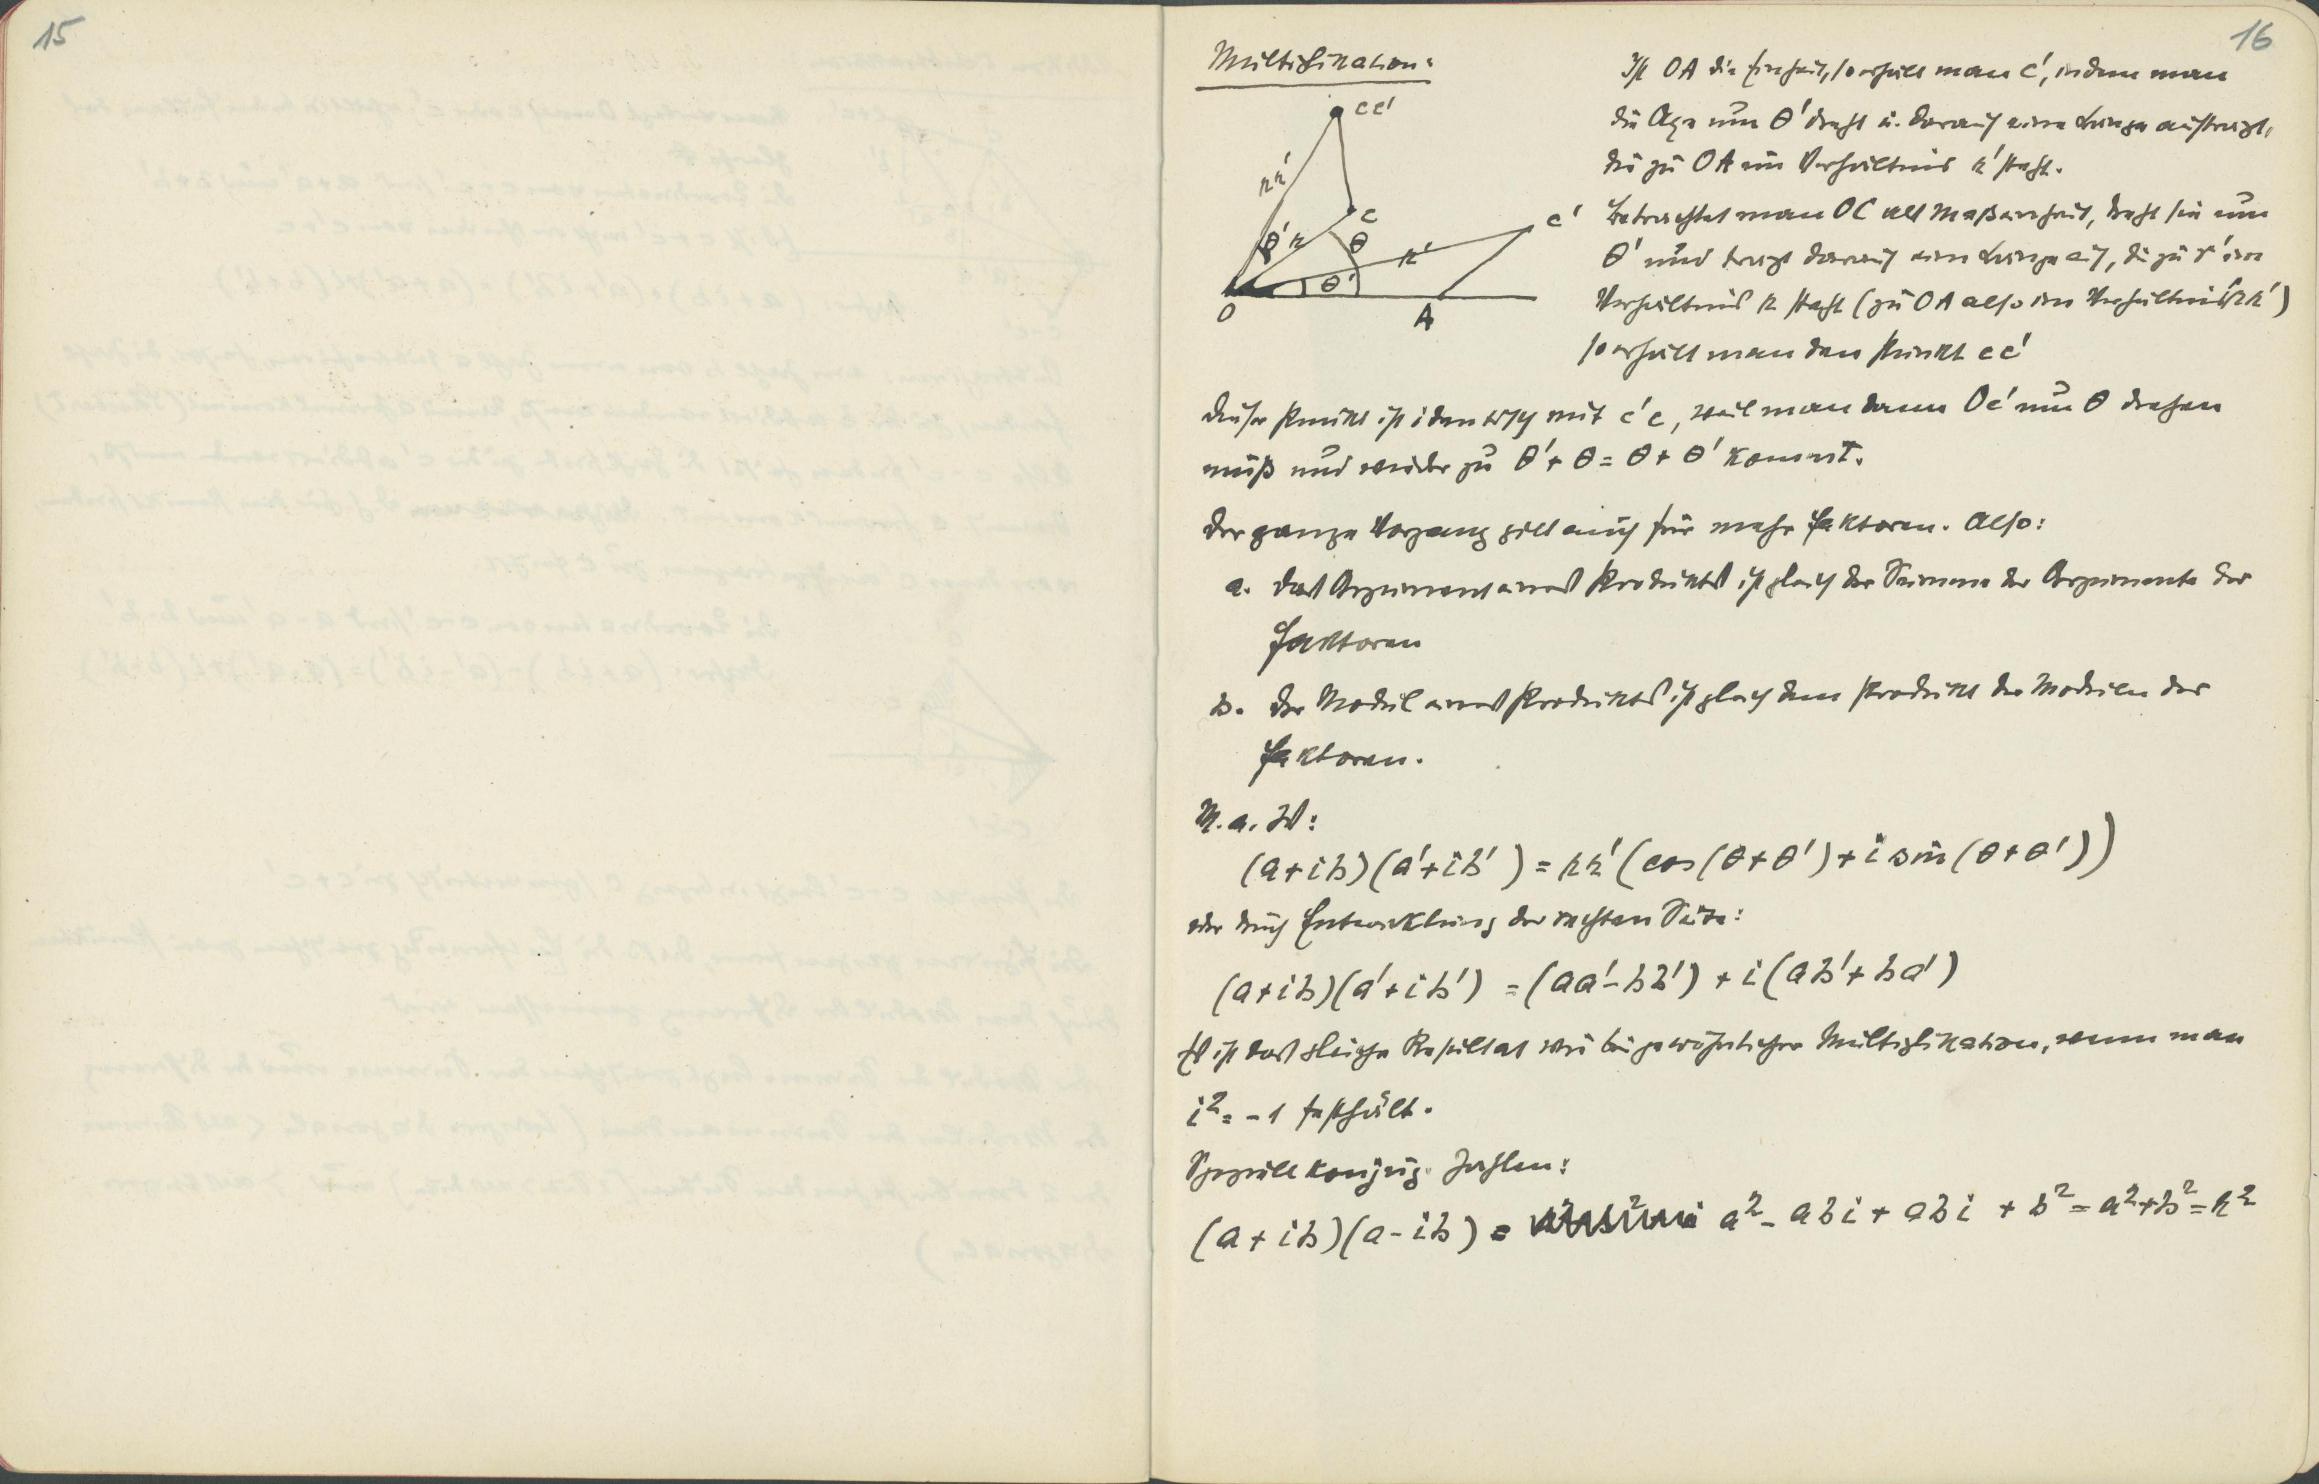 15
16
Multiplikation:
cc'
rr'
c
c'
θ'
r
θ
r'
θ'
O
A
Ist OA die Einheit, so erhält man c', indem man
die Axe um θ' dreht u. darauf eine Länge aufträgt,
die zu OA im Verhältnis r' steht.
Betrachtet man OC als Maßeinheit, dreht sie um
θ' und trägt darauf eine Länge auf, die zu r' im
Verhältnis r steht (zu OA also im Verhältnis rr')
so erhält man den Punkt cc'
Dieser Punkt ist identisch mit c'c, weil man dann Oc' um θ drehen
muß und wieder zu θ' + θ = θ + θ' kommt.
Der ganze Vorgang gilt auch für mehr Faktoren. Also:
a. Das Argument eines Produkts ist gleich der Summe der Argumente der
Faktoren
b. Der Modul eines Produkts ist gleich dem Produkt der Moduln der
Faktoren.
M.a.W:
(a+ib)(a'+ib') = rr'(cos(θ+θ')+i sin(θ+θ'))
oder durch Entwicklung der rechten Seite:
(a+ib)(a'+ib') = (aa'-bb') + i(ab'+ba')
Es ist das gleiche Resultat wie bei gewöhnlicher Multiplikation, wenn man
i² = -1 festhält.
Speziell konjug. Zahlen:
(a+ib)(a-ib) = a² - abi + abi + b² = a²+b² = r²